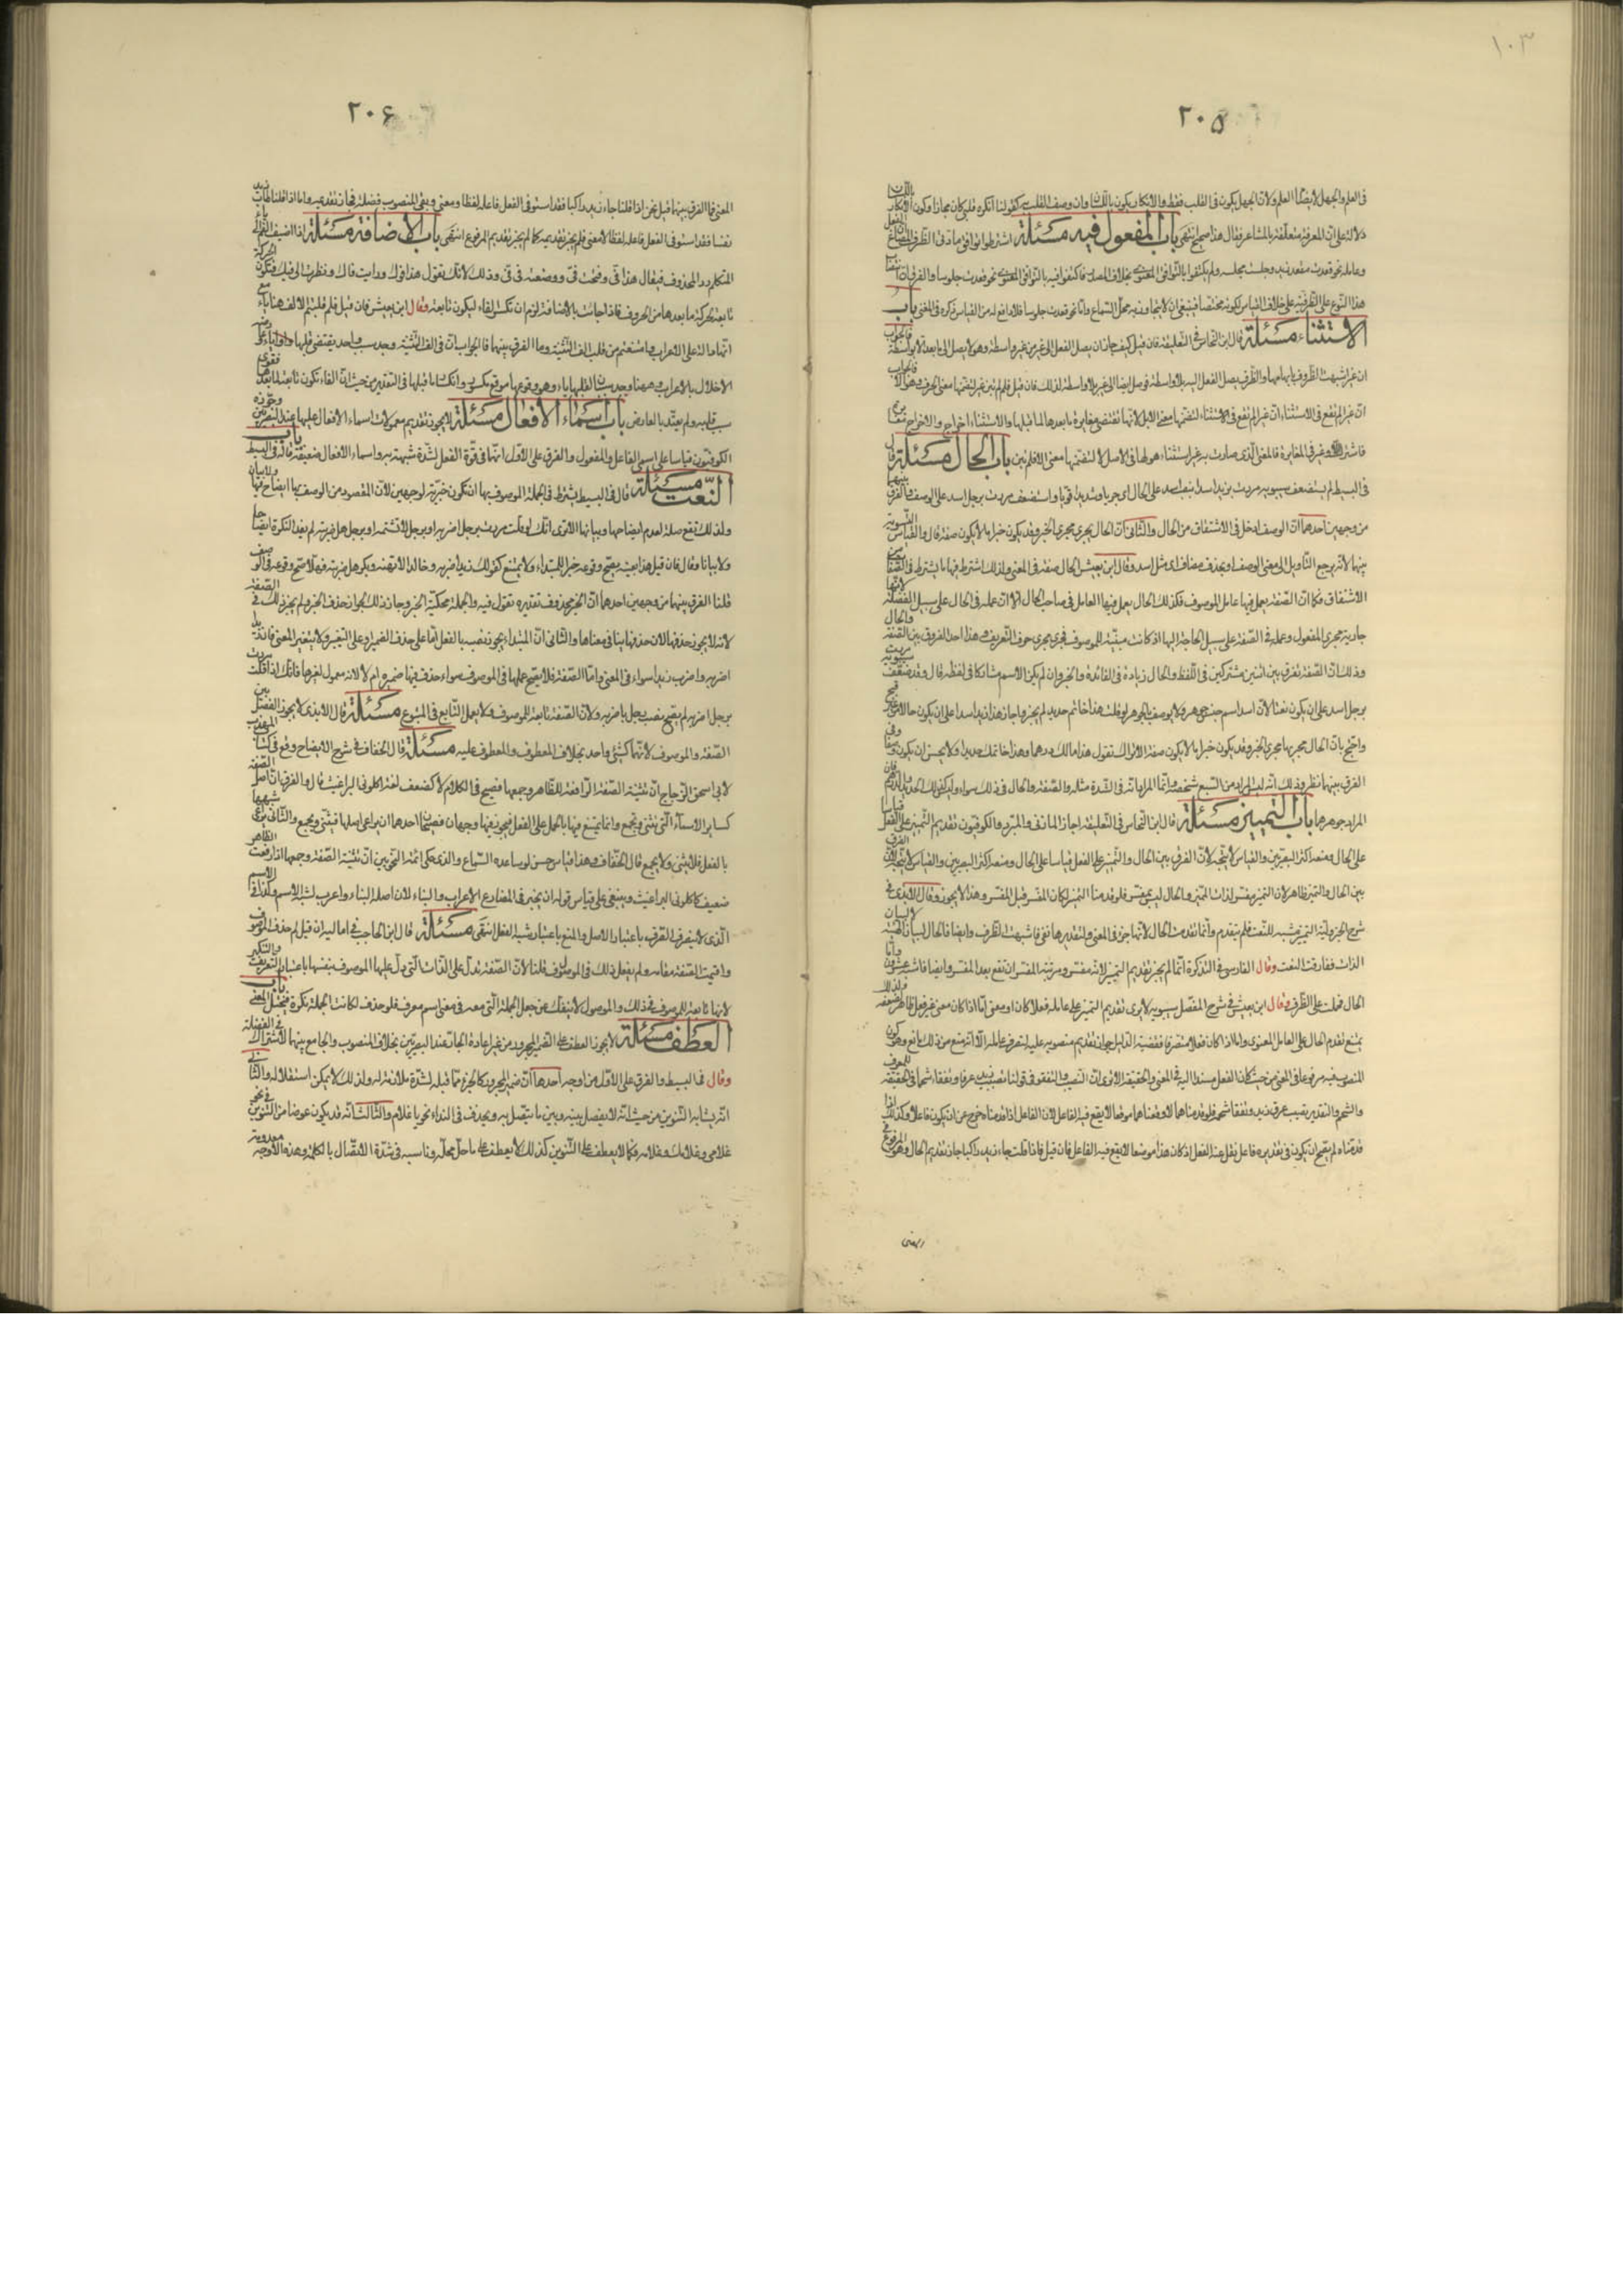 ١٠٣
٢٠٥
فى العلم والجهل لا يضادّ العلم ولانّ الجهل يكون فى القلب فقط والانكار يكون باللسان وان وصف القلب به كقولنا انكره قلبى كان مجازا وكون الانكار باللسان
دلالة على انّ المعرفة متعلّقة بالمشاعر فقال هذا صحيح انتهى باب المفعول فيه مسئلة اشترطوا توافق مادتى الظرف المصاغ من الفعل
وعامله نحو قعدت مقعد زيد وجلست مجلسه ولم يكتفوا بالتوافق المعنوى بخلاف المصدر فاكتفوا فيه بالتوافق المعنوى نحو قعدت جلوسا والفرق ان انتصاب
هذا النوع على الظرفية على خلاف القياس لكونه مختصا فينبغى ان لا يتجاوز به محلّ السماع وامّا نحو قعدت جلوسا فلا دافع له من القياس ذكره فى المغنى باب
الاستثناء مسئلة قال ابن النحاس فى التعليقة فان قيل كيف جاز ان يصل الفعل الى غير من غير واسطة وهو لا يصل الى ما بعد الا بواسطة فالجواب
ان غير اشبهت الظروف بابهامها والظرف يصل الفعل اليه بلا واسطة فوصل ايضا الى غير بلا واسطة لذلك فان قيل فلم لم تبن غير لتضمّنها معنى الحرف وهو الا فالجواب
انّ غير لم تقع فى الاستثناء لتضمّنها معنى الا بل لانها تقتضى مغايرة ما بعدها لما قبلها والاستثناء اخراج والاخراج مغايرة
فاشترك الا وغير فى المغايرة فالمعنى الذى صارت به غير استثناء هو لها فى الاصل لا لتضمّنها معنى الا فلم تبن باب الحال مسئلة قال
فى البسيط لم يستضعف سيبويه مررت بزيد اسدا بنصب اسد على الحال اى جريا وشديدا قويا واستضعف مررت برجل اسد على الوصف والفرق بينهما
من وجهين احدهما انّ الوصف ادخل فى الاشتقاق من الحال والثانى انّ الحال يجرى مجرى الخبر وقد يكون خبرا ما لا يكون صفة قال والقياس التسوية
بينهما لانه يرجع التأويل الى معنى الوصف او بحذف مضاف اى مثل اسد وقال ابن يعيش الحال صفة فى المعنى ولذلك اشترط فيها ما يشترط فى الصفات من
الاشتقاق فكما انّ الصفة يعمل فيها عامل الموصوف فكذلك الحال يعمل فيها العامل فى صاحب الحال الا انّ عمله فى الحال على سبيل الفضلة لانها
جارية مجرى المفعول وعمله فى الصفة على سبيل الحاجة اليها اذ كانت مبيّنة للموصوف فجرى مجرى حرف التعريف وهذا احد الفروق بين الصفة والحال
وذلك انّ الصفة تفرق بين اثنين مشتركين فى اللفظ والحال زيادة فى الفائدة والخبر وان لم يكن الاسم مشاركا فى لفظه قال وقد ضعّف سيبويه مررت
برجل اسد على ان يكون نعتا لانّ اسدا اسم جنس جوهر ولا يوصف بالجوهر لو قلت هذا خاتم حديد لم يجز واجاز هذا زيد اسدا على ان يكون حالا من غير قبح
واحتج بانّ الحال مجراها مجرى الخبر وقد يكون خبرا ما لا يكون صفة الا تراك تقول هذا مالك درهما وهذا خاتمك حديدا ولا يحسن ان يكون وصفا وفى
الفرق بينهما نظر وذلك انّه ليس المراد من السبع شخصه وانّما المراد انّه فى الشدة مثله والصفة والحال فى ذلك سواء وليس كذلك الحديد والدرهم فان
المراد جوهرهما باب التمييز مسئلة قال ابن النحاس فى التعليقة اجاز المازنى والمبرد والكوفيون تقديم التمييز على الفعل قياسا
على الحال ومنعه اكثر البصريين والقياس لا يتجه لانّ الفرق بين الحال والتمييز على الفعل قياسا على الحال ومنعه اكثر البصريين والقياس لا يتجه لانّ الفرق
بين الحال والتمييز ظاهر لان التمييز مفسّر لذات المميز والحال ليس بمفسّر فلو قدمنا التمييز لكان المفسّر قبل المفسّر وهذا لا يجوز وقال الابدى فى
شرح الجزولية التمييز مشبه للنعت فلم يتقدم وانّما تقدمت الحال لانها خبر فى المعنى ولتقديرها بفى فاشبهت الظرف وايضا فالحال لبيان الهيئة لا لبيان
الذات ففارقت النعت وقال الفارسى فى التذكرة انّما لم يجز تقديم التمييز لانه مفسّر ومرتبة المفسّر ان تقع بعد المفسّر وايضا فاشبه عشرون وامّا
الحال فحملت على الظرف وقال ابن يعيش فى شرح المفصّل سيبويه لا يرى تقديم التمييز على عامله فعلا كان او معنى امّا اذا كان معنى غير فعل فظاهر لضعفه ولذلك
يمتنع تقديم الحال على العامل المعنوى وامّا اذا كان فعلا متصرفا فقضية الدليل جواز تقديم منصوبه عليه لتصرف عامله الّا انّه منع من ذلك مانع وهو كون
المنصوب فيه مرفوعا فى المعنى من حيث كان الفعل مسندا اليه فى المعنى والحقيقة الا ترى انّ التصبب والتفقؤ فى قولنا تصبب زيد عرقا وتفقأ شحما فى الحقيقة للعرق
والشحم والتقدير تصبب عرق زيد وتفقأ شحمه فلو قدمناهما لاوقعناهما موقعا لا يقع فيه الفاعل لان الفاعل اذا قدمناه خرج عن ان يكون فاعلا وكذلك اذا
قدمناه لم يصح ان يكون فى تقديره فاعل نقل عنه الفعل اذ كان هذا موضعا لا يقع فيه الفاعل فان قيل فاذا قلت جاء زيد راكبا جاز تقديم الحال وهو المرفوع فى
٢٠۶
المعنى فما الفرق بينهما قيل نحن اذا قلنا جاء زيد راكبا فقد استوفى الفعل فاعله لفظا ومعنى وبقى المنصوب فضلة فجاز تقديمه وامّا اذا قلنا طاب زيد
نفسا فقد استوفى الفعل فاعله لفظا لا معنى فلم يجز تقديمه كما لم يجز تقديم المرفوع انتهى باب الاضافة مسئلة اذا اضيف الفم الى ياء
المتكلم ردّ المحذوف فيقال هذا فىّ وفتحت فىّ ووضعته فى فىّ وذلك لانك تقول هذا فوك ورايت فاك ونظرت الى فيك فتكون الحركة
تابعة لحركة ما بعدها من الحروف فاذا جاءت ياء الاضافة لزم ان تكسر الفاء ليكون تابعة وقال ابن يعيش فان قيل فلم قلبتم الالف هنا ياء مع
انها دالة على الاعراب وامتنعتم من قلب الف التثنية وما الفرق بينهما فالجواب انّ فى الف التثنية وجد سبب واحد يقتضى قلبها
الاخلال بالاعراب وههنا وجد سببان لقلبها ياء وهو وقوعها موقع مكسور وانكسار ما قبلها فى التقدير من حيث انّ الفاء تكون تابعة لما بعدها فقوى
سبب قلبه ولم يعتدّ بالعارض باب اسماء الافعال مسئلة لا يجوز تقديم معمولات اسماء الافعال عليها عند البصريين وجوزه
الكوفيون قياسا على اسمى الفاعل والمفعول والفرق على الاوّل انّهما فى قوّة الفعل لشدّة شبههما به واسماء الافعال ضعيفة قاله فى البسيط باب
النعت مسئلة قال فى البسيط يشترط فى الجملة الموصوف بها ان تكون خبرية لوجهين لانّ المقصود من الوصف بها ايضاح وبيان
ولذلك تقع صلة لعدم ايضاحها وبيانها الا ترى انّك لو قلت مررت برجل اضربه او برجل لا تشتمه او برجل هل ضربته لم يفد النكرة ايضاحا
ولا بيانا وقال فان قيل هذا بعينه يصحّ وقوعه خبرا للمبتداء ولا يمتنع كقولك زيد اضربه وخالد لا تهنه وبكر هل ضربته فهلا صح وقوعه فى الوصف
قلنا الفرق بينهما من وجهين احدهما انّ الخبر محذوف تقديره تقول فيه والجملة محكيّة الخبر وجاز ذلك لجواز حذف الخبر ولم يجز ذلك فى الصفة
لانه لا يجوز حذفها لان حذفها ينافى معناها والثانى انّ المبتدا يجوز نصبه بالفعل امّا على حذف الضمير وعلى التفسير ولا يتغير المعنى فانّ زيدا
اضربه واضرب زيدا سواء فى المعنى وامّا الصفة فلا يصحّ عملها فى الموصوف سواء حذف فيها ضميره ام لا لانه معمول لغيرها فانّك اذا قلت مررت
برجل اضربه لم يصحّ نصب رجل باضربه ولانّ الصفة تابعة للموصوف ولا يعمل التابع فى المتبوع مسئلة قال الابذى لا يجوز الفصل بين
الصفة والموصوف لانّهما كشئ واحد بخلاف المعطوف والمعطوف عليه مسئلة قال الخفاف فى شرح الايضاح وقع فى كتاب المهذب
لابى اسحق الزجاج انّ تثنية الصفة الرافعة للظاهر وجمعها فصيح فى الكلام لا كضعف لغة اكلونى البراغيث قال والفرق انّ اصل الصفة
كسائر الاسماء الّتى تثنى وتجمع وانما يمتنع فيها بالحمل على الفعل فيجوز فيها وجهان فصيحان احدهما ان يراعى اصلها فتثنى وتجمع والثانى يراعى شبهها
بالفعل فلا يثنى ولا يجمع قال الخفاف وهذا قياس حسن لو ساعده السماع والذى حكى ائمة النحويين انّ تثنية الصفة وجمعها اذا رفعت الظاهر
ضعيف كاكلونى البراغيث وينبغى على قياس قوله ان يجيز فى المضارع الاعراب والبناء لان اصله البناء واعرب لشبه الاسم وكذلك الاسم
الّذى لا ينصرف الصرف باعتبار الاصل والمنع باعتبار شبه الفعل انتهى مسئلة قال ابن الحاجب فى اماليه ان قيل لم حذف الموصوف
واقيمت الصفة مقامه ولم يفعل ذلك فى الموصول قلنا لانّ الصفة تدلّ على الذات الّتى دلّ عليها الموصوف بنفسها باعتبار التعريف والتنكير
لانها تابعة للموصوف فى ذلك والموصول لا ينفكّ عن جعل الجملة الّتى معه فى معنى اسم معرف فلو حذف لكانت الجملة نكرة فيختلّ المعنى باب
العطف مسئلة لا يجوز العطف على الضمير المجرور من غير اعادة الجارّ عند البصريين بخلاف المنصوب والجامع بينهما الاشتراك فى الفضلة
وقال فى البسيط والفرق على الاوّل من اوجه احدها انّ ضمير المجرور كالجزء ممّا قبله لشدّة ملازمته له ولذلك لا يمكن استقلاله والثانى
انه يشابه التنوين من حيث انّه لا يفصل بينه وبين ما يتصل به ويحذف فى النداء نحو يا غلام والثالث انّه قد يكون عوضا من التنوين فى نحو
غلامى وغلامك وغلامه فكما لا يعطف على التنوين كذلك لا يعطف على ما حلّ محلّه وناسبه فى شدّة الاتّصال بالكلمة وهذه الاوجه معدومة